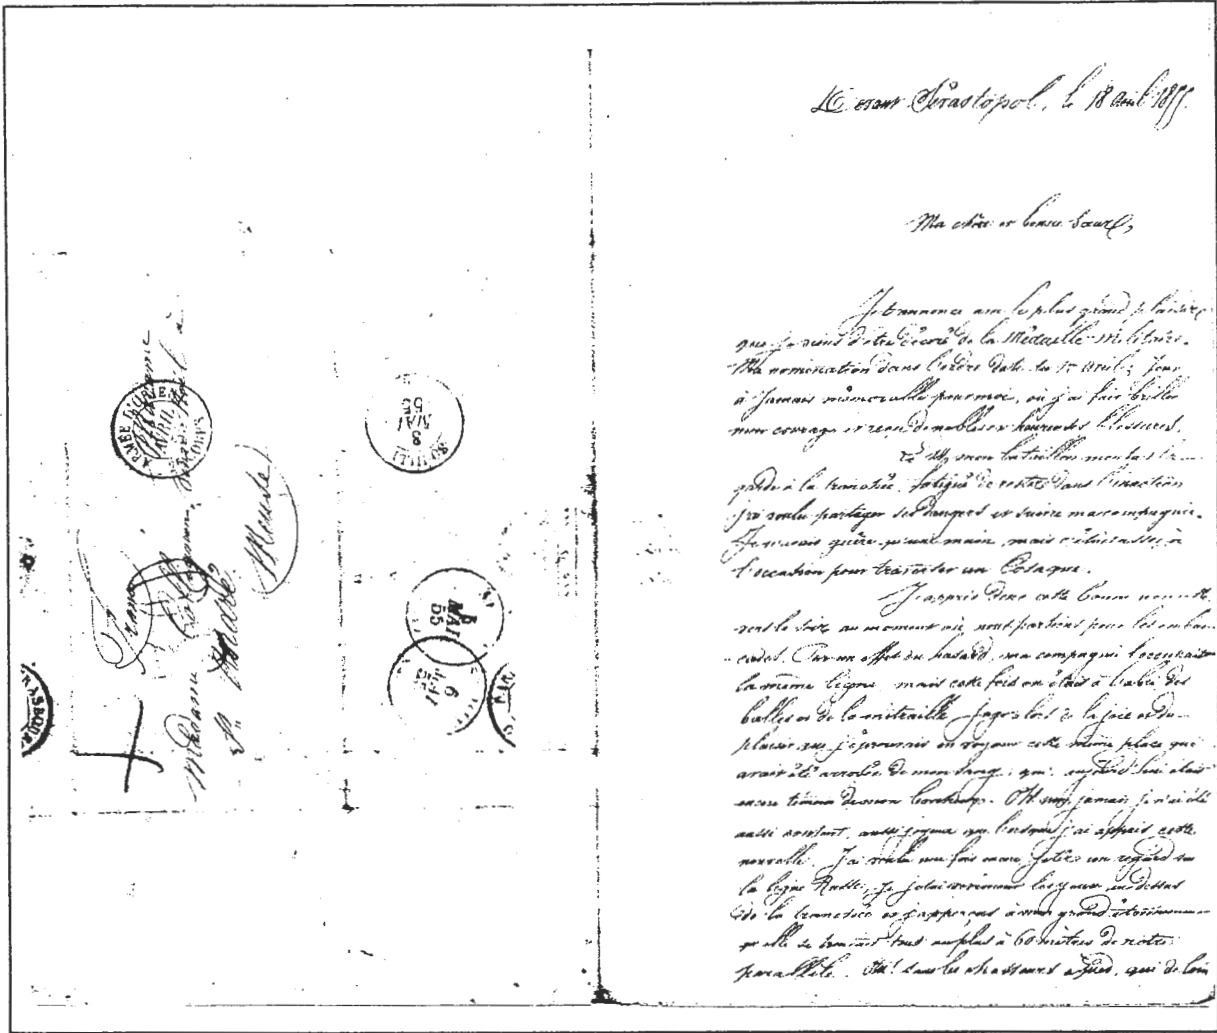 Devant Sévastopol, le 18 avril 1855.
Ma chère et bonne Sœur,
Je t'annonce avec le plus grand plaisir
que je viens d'être décoré de la Médaille Militaire.
Ma nomination dans l'ordre date du 17 avril; Jour
à Jamais mémorable pour moi, où j'ai fait briller
mon courage et reçu de nobles et heureuses blessures.
mon bataillon montait la
garde à la tranchée, fatigué de rester dans l'inaction
j'ai voulu partager ses dangers et suivre ma compagnie.
Je n'avais guère qu'une main, mais c'était assez, à
l'occasion pour traverser un Cosaque.
J'appris donc cette bonne nouvelle
vers le soir au moment où nous partions pour les embus-
cades. Par un effet du hasard, ma compagnie occupait
la même ligne, mais cette fois on était à l'abri des
balles et de la mitraille. Juge alors de la joie et du
plaisir que j'éprouvais en voyant cette même place qui
avait été arrosée de mon sang, qui aujourd'hui était
encore témoin de mon bonheur. Oh non, jamais je n'ai été
aussi content, aussi joyeux que lorsque j'ai appris cette
nouvelle. J'ai voulu une fois encore Jeter un regard sur
la ligne Russe, je jetai les yeux au dessus
de la tranchée et j'apperçus à mon grand étonnement
qu'elle se trouvait tout au plus à 60 mètres de notre
parallèle. Ah! tous les chasseurs à pied, qui de loin
ARMÉE D'ORIENT
AVRIL
CORPS
France
Madame
St André
Meuse
8
MAI
55
SOUILLY
MAI
55
6
MAI